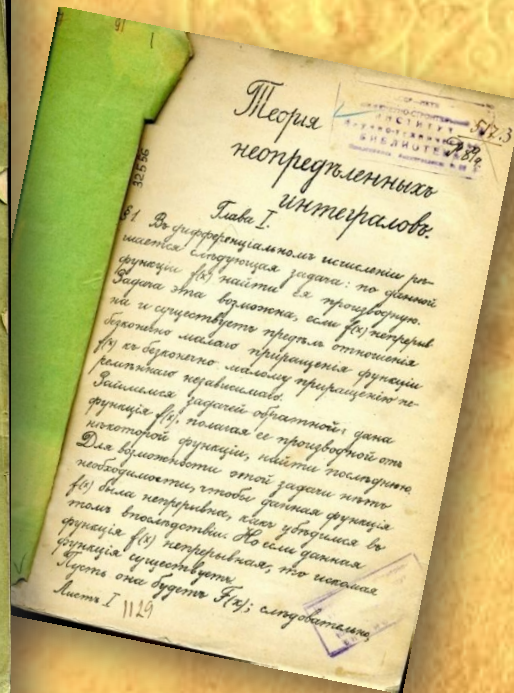 Теория
неопредѣленныхъ
интеграловъ.
517.3
ИНСТИТУТ
БИБЛИОТЕКА
32556
Глава I.
§ 1 Въ дифференціальномъ исчисленіи рѣ-
шается слѣдующая задача: по данной
функціи f(x) найти ея производную.
Задача эта возможна, если f(x) непрерыв
на и существуетъ предѣлъ отношенія
безконечно малаго приращенія функціи
f(x) къ безконечно малому приращенію пе-
ремѣннаго независимаго.
Займемся задачей обратной: дана
функція f(x); полагая ее производной отъ
нѣкоторой функціи, найти послѣднюю.
Для возможности этой задачи нѣтъ
необходимости, чтобы данная функція
f(x) была непрерывна, какъ убѣдимся въ
томъ впослѣдствіи. Но если данная
функція f(x) непрерывная, то искомая
функція существуетъ.
Пусть она будетъ F(x); слѣдовательно,
Листъ I 1129